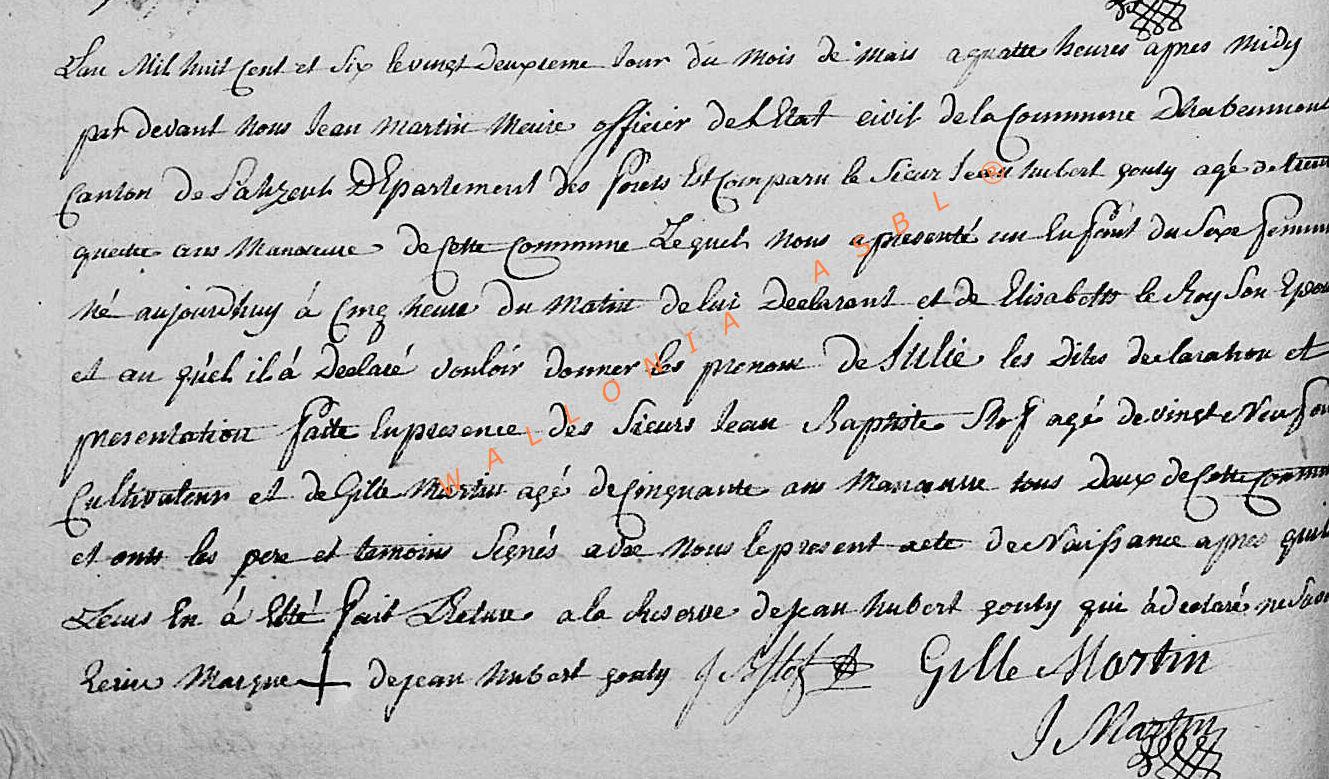 L'an Mil huit Cent et Six le vingt Deuxieme Jour du Mois de Mais a quatte heures apres Midy
par devant Nous Jean Martin Meire officier de L Etat civil de la Commune D'Rabeumont
Canton de Palizeul D'Epartement des forets Est Comparu le Sieur Jean hubert gouty agé de trente
quatre ans Manœuvre de Cette Commune Lequel Nous a presenté un Enfant du Sexe feminin
né aujourdhuy à Cinq heure du Matin de lui Declarant et de Elisabeth le Roy Son Epou
et au quel il à Declaré vouloir donner les prenom de Julie les Dites declaration et
presentation faite En presence des Sieurs Jean Baptiste Slof agé de vingt Neuf an
Cultivateur et de Gille Martin agé de Cinquante ans Manœuvre tous Deux de Cette Commun
et onts les pere et temoins Signés avec Nous le present acte de Naissance apres quil
Leurs En à Etté fait Lecture a la Reserve de jean hubert gouty qui à declaré ne Savoir
Ecrire Marque de jean hubert gouty J B Slof Gille Martin
J Martin
WALLONIA ASBL ®